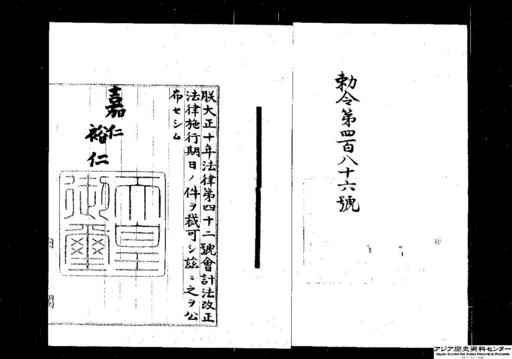 勅令第四百八十六號
朕大正十年法律第四十二號會計法改正
法律施行期日ノ件ヲ裁可シ茲ニ之ヲ公
布セシム
嘉仁
裕仁
天皇
御璽
内閣
アジア歴史資料センター
Japan Center for Asian Historical Records